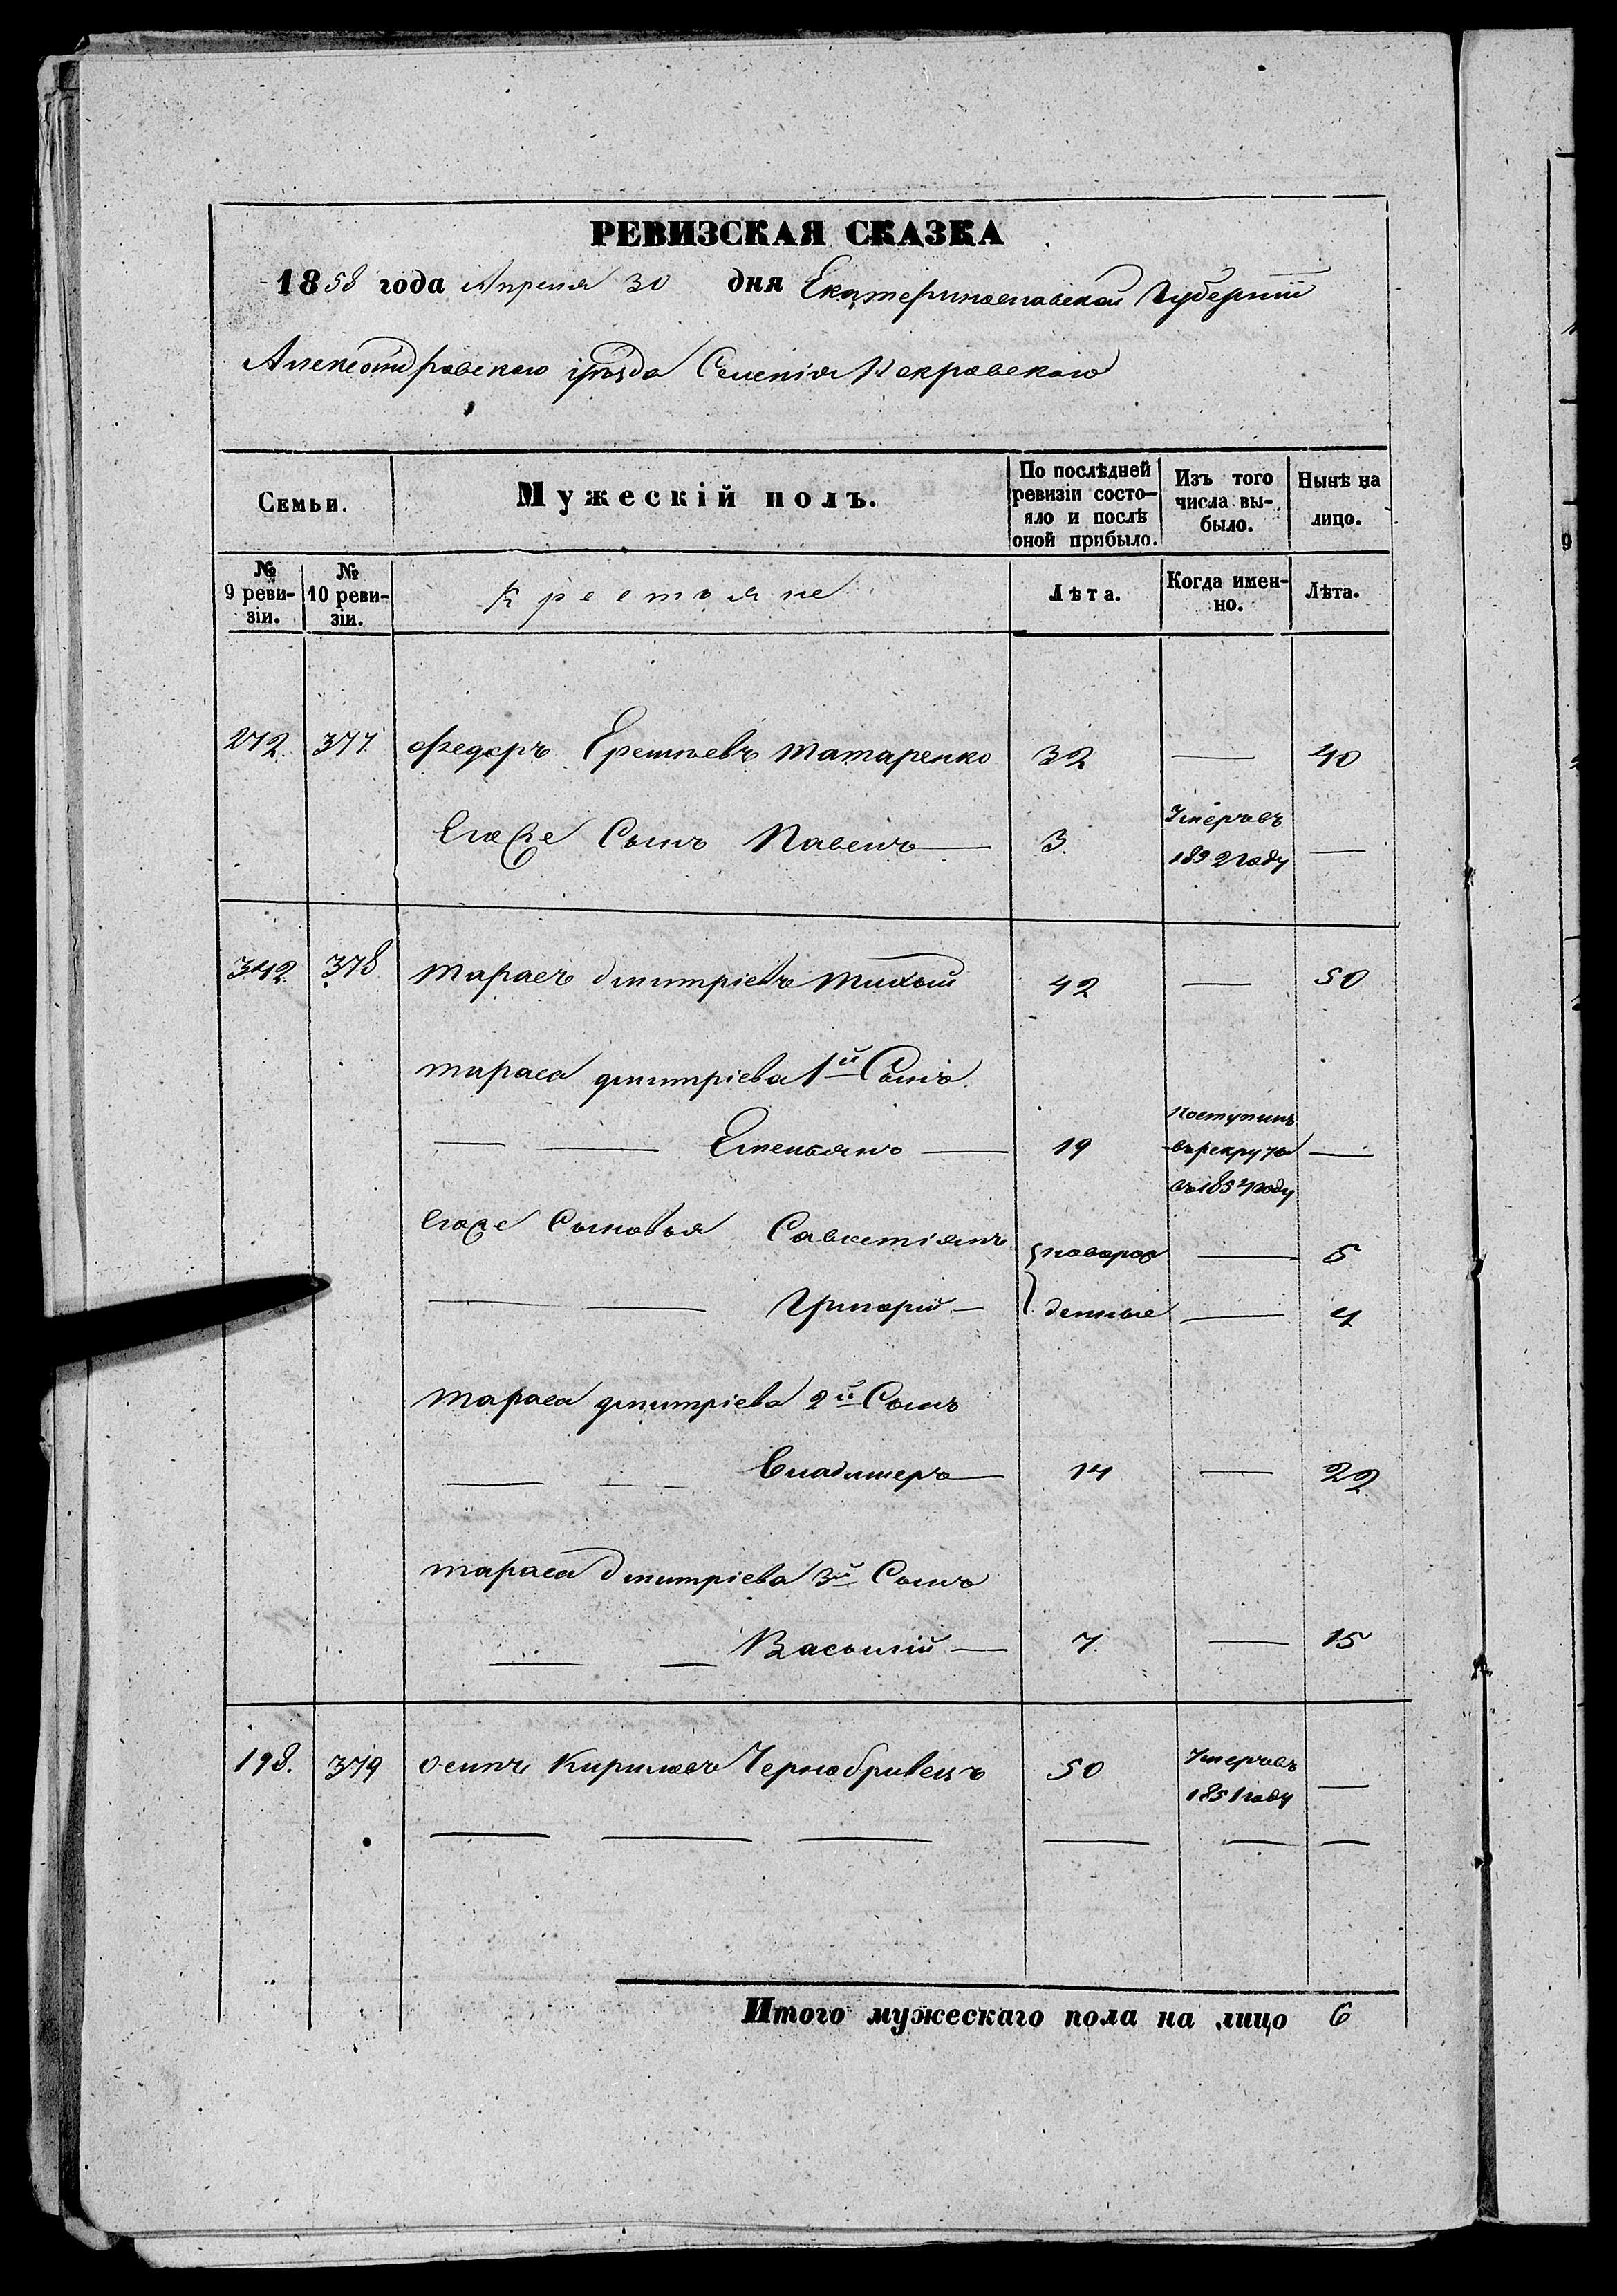 РЕВИЗСКАЯ СКАЗКА
1858 года Апреля 30 дня Екатеринославской Губернiи
Александровскаго уѣзда Селенiя Покровскаго
Семьи.
Мужескiй полъ.
По послѣдней ревизiи состо-яло и послѣ оной прибыло.
Изъ того числа вы-было.
Нынѣ на лицо.
№ 9 реви-зiи.
№ 10 реви-зiи.
Крестьяне
Лѣта.
Когда имен-но.
Лѣта.
272. 377. Федоръ Еремѣевъ Татаренко 32 — 40
Умеръ въ
Егоже Сынъ Павелъ — 3. —
1852 году
342. 378 Тарасъ Дмитрiевъ Тихый 42 — 50
Тараса Дмитрiева 1й Сынъ
поступилъ
— — Емельянъ — 19 въ рекруты —
въ 1854 году
Егоже Сыновья Савастiянъ новорож — 5
— — Григорiй — денные — 4
Тараса Дмитрiева 2й Сынъ
— — Владимеръ — 14 — 22
Тараса Дмитрiева 3й Сынъ
— — Василiй — 7. — 15
198. 379 Осипъ Кириловъ Чернобривецъ 50 Умеръ въ —
1851 году
— — — — — —
Итого мужескаго пола на лицо 6
9